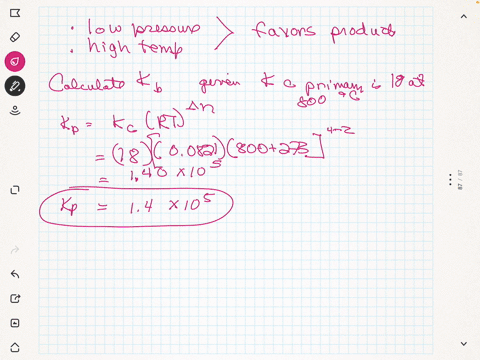 · low pressure > favors product
· high temp
Calculate Kb given Kc primary is 18 at
800 °C
Kp = Kc (RT)^Δn
= (18)[(0.0821)(800+273)]^4-2
= 1.40 × 10^5
Kp = 1.4 × 10^5